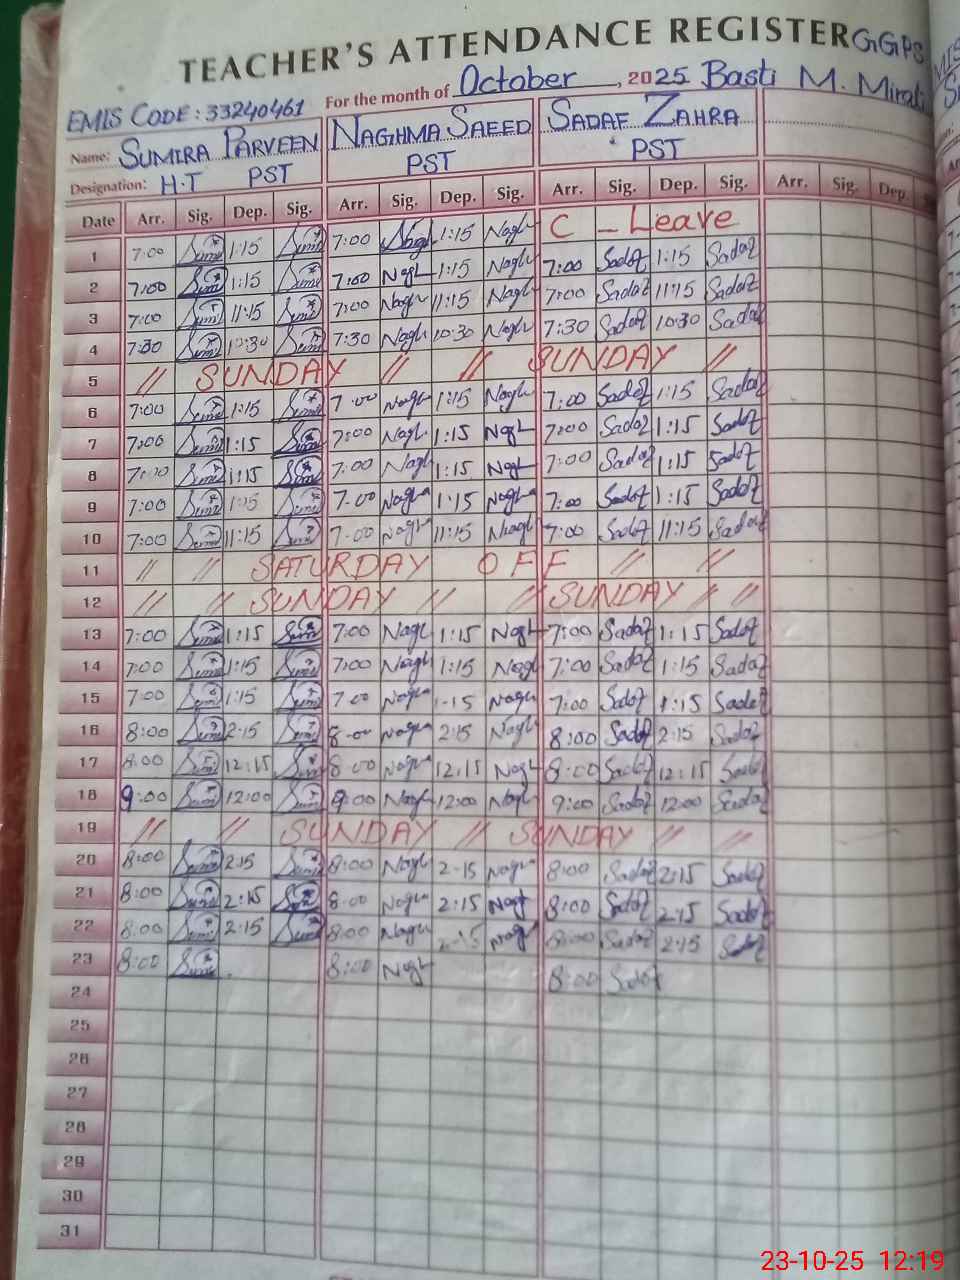 TEACHER'S ATTENDANCE REGISTER GGPS
For the month of October, 2025 Basti M. Mirali
EMIS CODE: 33240461
Name: SUMIRA PARVEEN NAGHMA SAEED SADAF ZAHRA
Designation: H.T PST PST PST
Date Arr. Sig. Dep. Sig. Arr. Sig. Dep. Sig. Arr. Sig. Dep. Sig. Arr. Sig. Dep
1 7:00 1:15 7:00 Nagh 1:15 Nagh C - Leave
2 7:00 1:15 7:00 Nagh 1:15 Nagh 7:00 Sadaf 1:15 Sadaf
3 7:00 11:15 7:00 Nagh 11:15 Nagh 7:00 Sadaf 11:15 Sadaf
4 7:30 10:30 7:30 Nagh 10:30 Nagh 7:30 Sadaf 10:30 Sadaf
5 // SUNDAY // // SUNDAY //
6 7:00 1:15 7:00 Nagh 1:15 Nagh 7:00 Sadaf 1:15 Sadaf
7 7:00 1:15 7:00 Nagh 1:15 Nagh 7:00 Sadaf 1:15 Sadaf
8 7:00 1:15 7:00 Nagh 1:15 Nagh 7:00 Sadaf 1:15 Sadaf
9 7:00 1:15 7:00 Nagh 1:15 Nagh 7:00 Sadaf 1:15 Sadaf
10 7:00 11:15 7:00 Nagh 11:15 Nagh 7:00 Sadaf 11:15 Sadaf
11 // // SATURDAY OFF // //
12 // // SUNDAY // // SUNDAY // //
13 7:00 1:15 7:00 Nagh 1:15 Nagh 7:00 Sadaf 1:15 Sadaf
14 7:00 1:15 7:00 Nagh 1:15 Nagh 7:00 Sadaf 1:15 Sadaf
15 7:00 1:15 7:00 Nagh 1:15 Nagh 7:00 Sadaf 1:15 Sadaf
16 8:00 2:15 8:00 Nagh 2:15 Nagh 8:00 Sadaf 2:15 Sadaf
17 8:00 12:15 8:00 Nagh 12:15 Nagh 8:00 Sadaf 12:15 Sadaf
18 9:00 12:00 9:00 Nagh 12:00 Nagh 9:00 Sadaf 12:00 Sadaf
19 // // SUNDAY // SUNDAY // //
20 8:00 2:15 8:00 Nagh 2:15 Nagh 8:00 Sadaf 2:15 Sadaf
21 8:00 2:15 8:00 Nagh 2:15 Nagh 8:00 Sadaf 2:15 Sadaf
22 8:00 2:15 8:00 Nagh 2:15 Nagh 8:00 Sadaf 2:15 Sadaf
23 8:00 8:00 Nagh 8:00 Sadaf
24
25
26
27
28
29
30
31
23-10-25 12:19